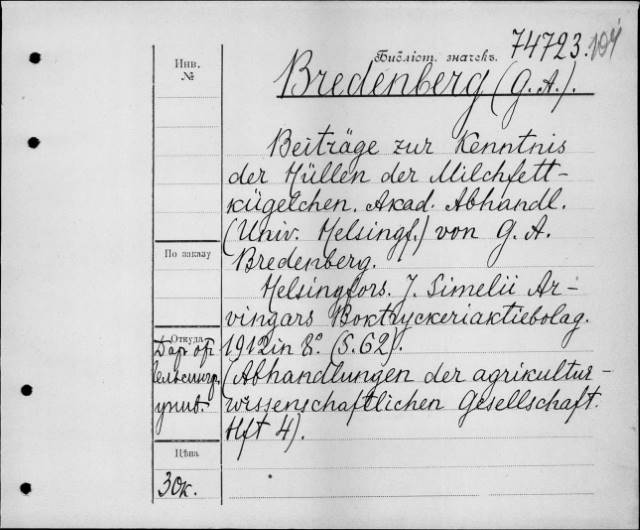 74723.
104
Инв.
№
Библіот. значекъ.
Bredenberg (G. A.).
Beiträge zur Kenntnis
der Hüllen der Milchfett-
kügelchen. Akad. Abhandl.
(Univ. Helsingf.) von G. A.
По заказу
Bredenberg.
Helsingfors. J. Simelii Ar-
vingars Boktryckeriaktiebolag.
Откуда
Дар от
1912 in 8°. (S. 62).
ельсингф.
(Abhandlungen der agrikultur-
унив.
wissenschaftlichen Gesellschaft.
Hft 4).
Цѣна
30к.